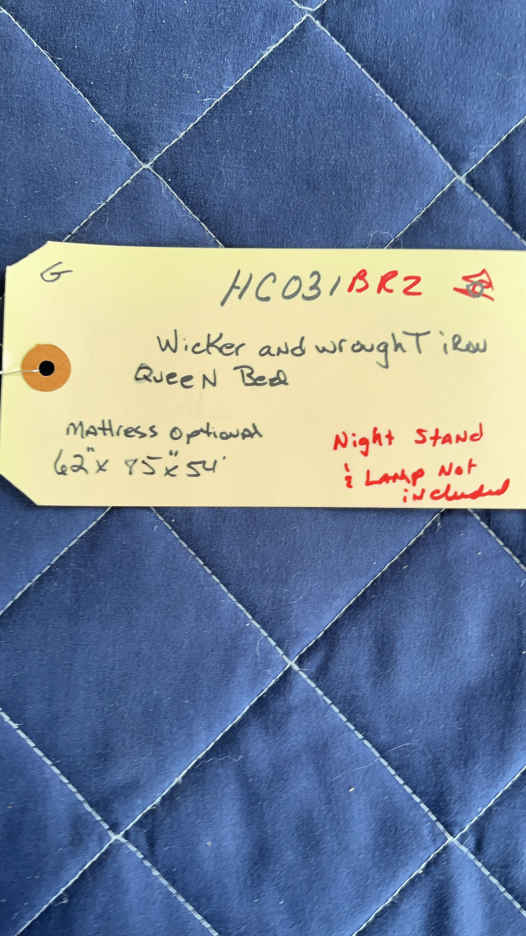 G
HC031BRZ
Wicker and wrought iRon
Queen Bed
Mattress optional
62"x 85"x 54"
Night Stand
& Lamp Not
included